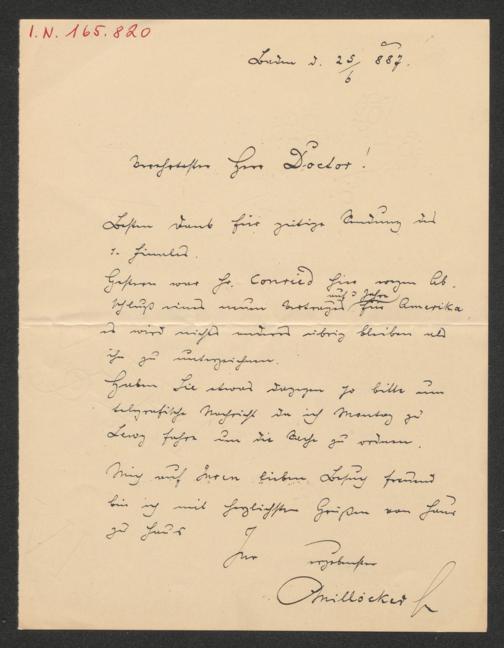 I.N. 165.820
Baden d. 25/6 887.
Verehrtester Herr Doctor!
Besten Dank für gütige Sendung des
1. Finales.
Gestern war Hr. Conried hier wegen Ab-
auf 3 Jahre
schluß eines neuen Vertrages für Amerika
es wird nichts anderes übrig bleiben als
ihn zu unterzeichnen.
Haben Sie etwas dagegen so bitte um
telegrafische Nachricht da ich Montag zu
Lewy fahre um die Sache zu ordnen.
Mich auf Ihren lieben Besuch freuend
bin ich mit herzlichsten Grüßen von Haus
zu Haus
Ihr ergebenster
CMillöcker